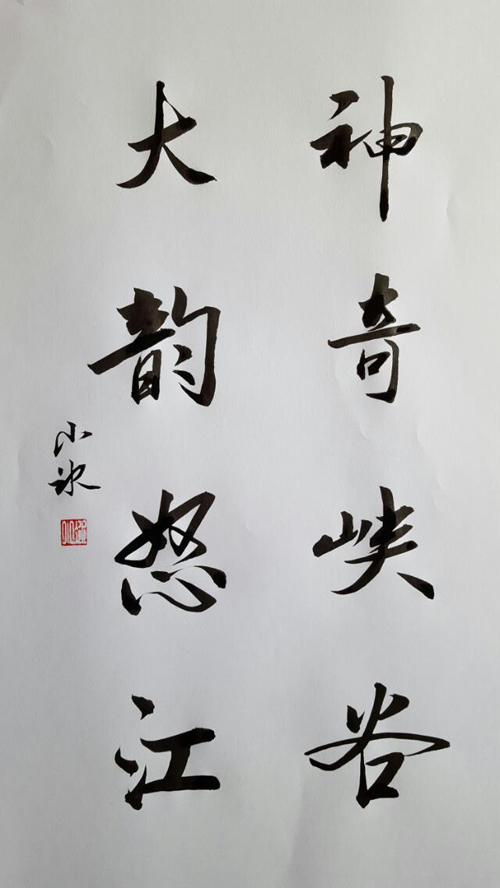 神奇峡谷
大韵怒江
小冰